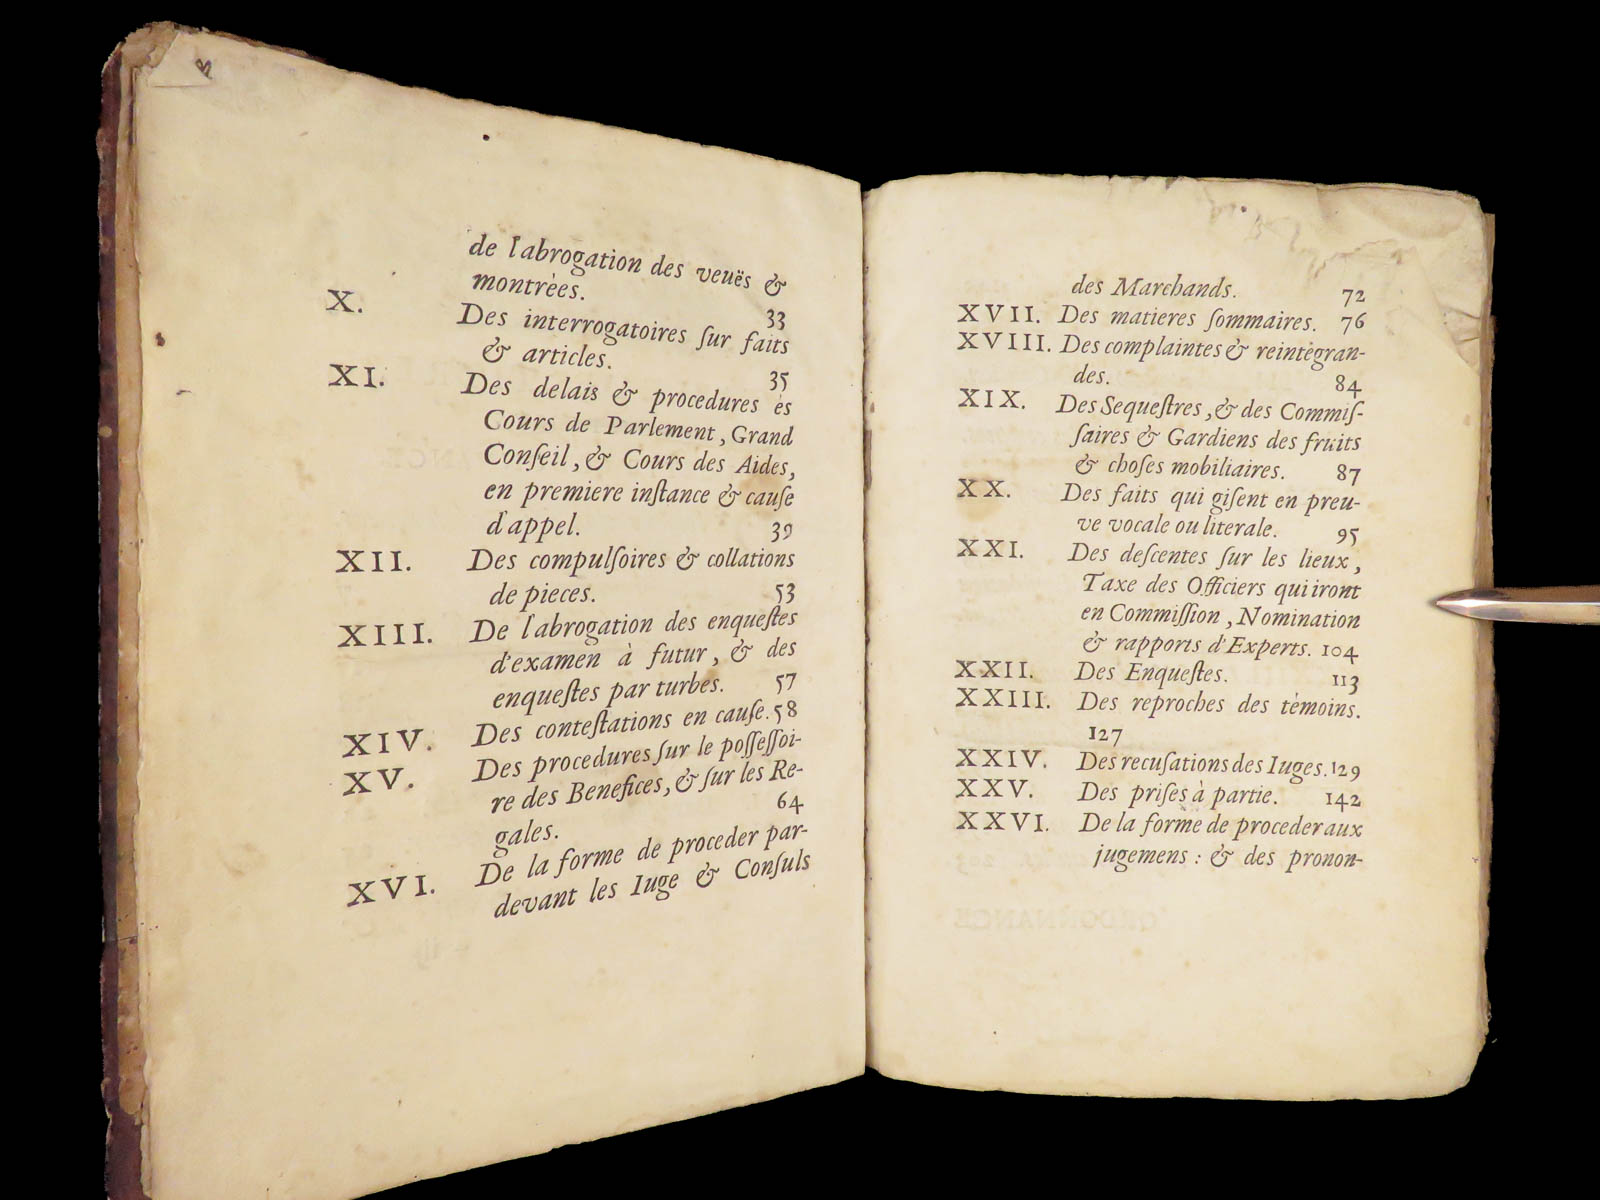 de l'abrogation des veuës &
montrées. 33
X. Des interrogatoires ſur faits
& articles. 35
XI. Des delais & procedures és
Cours de Parlement, Grand
Conſeil, & Cours des Aides,
en premiere inſtance & cauſe
d'appel. 39
XII. Des compulſoires & collations
de pieces. 53
XIII. De l'abrogation des enqueſtes
d'examen à futur, & des
enqueſtes par turbes. 57
XIV. Des conteſtations en cauſe. 58
XV. Des procedures ſur le poſſeſſoi-
re des Benefices, & ſur les Re-
gales. 64
XVI. De la forme de proceder par-
devant les Iuge & Conſuls
des Marchands. 72
XVII. Des matieres ſommaires. 76
XVIII. Des complaintes & reintègran-
des. 84
XIX. Des Sequeſtres, & des Commiſ-
ſaires & Gardiens des fruits
& choſes mobiliaires. 87
XX. Des faits qui giſent en preu-
ve vocale ou literale. 95
XXI. Des deſcentes ſur les lieux,
Taxe des Officiers qui iront
en Commiſſion, Nomination
& rapports d'Experts. 104
XXII. Des Enqueſtes. 113
XXIII. Des reproches des témoins.
127
XXIV. Des recuſations des Iuges. 129
XXV. Des priſes à partie. 142
XXVI. De la forme de proceder aux
jugemens : & des pronon-